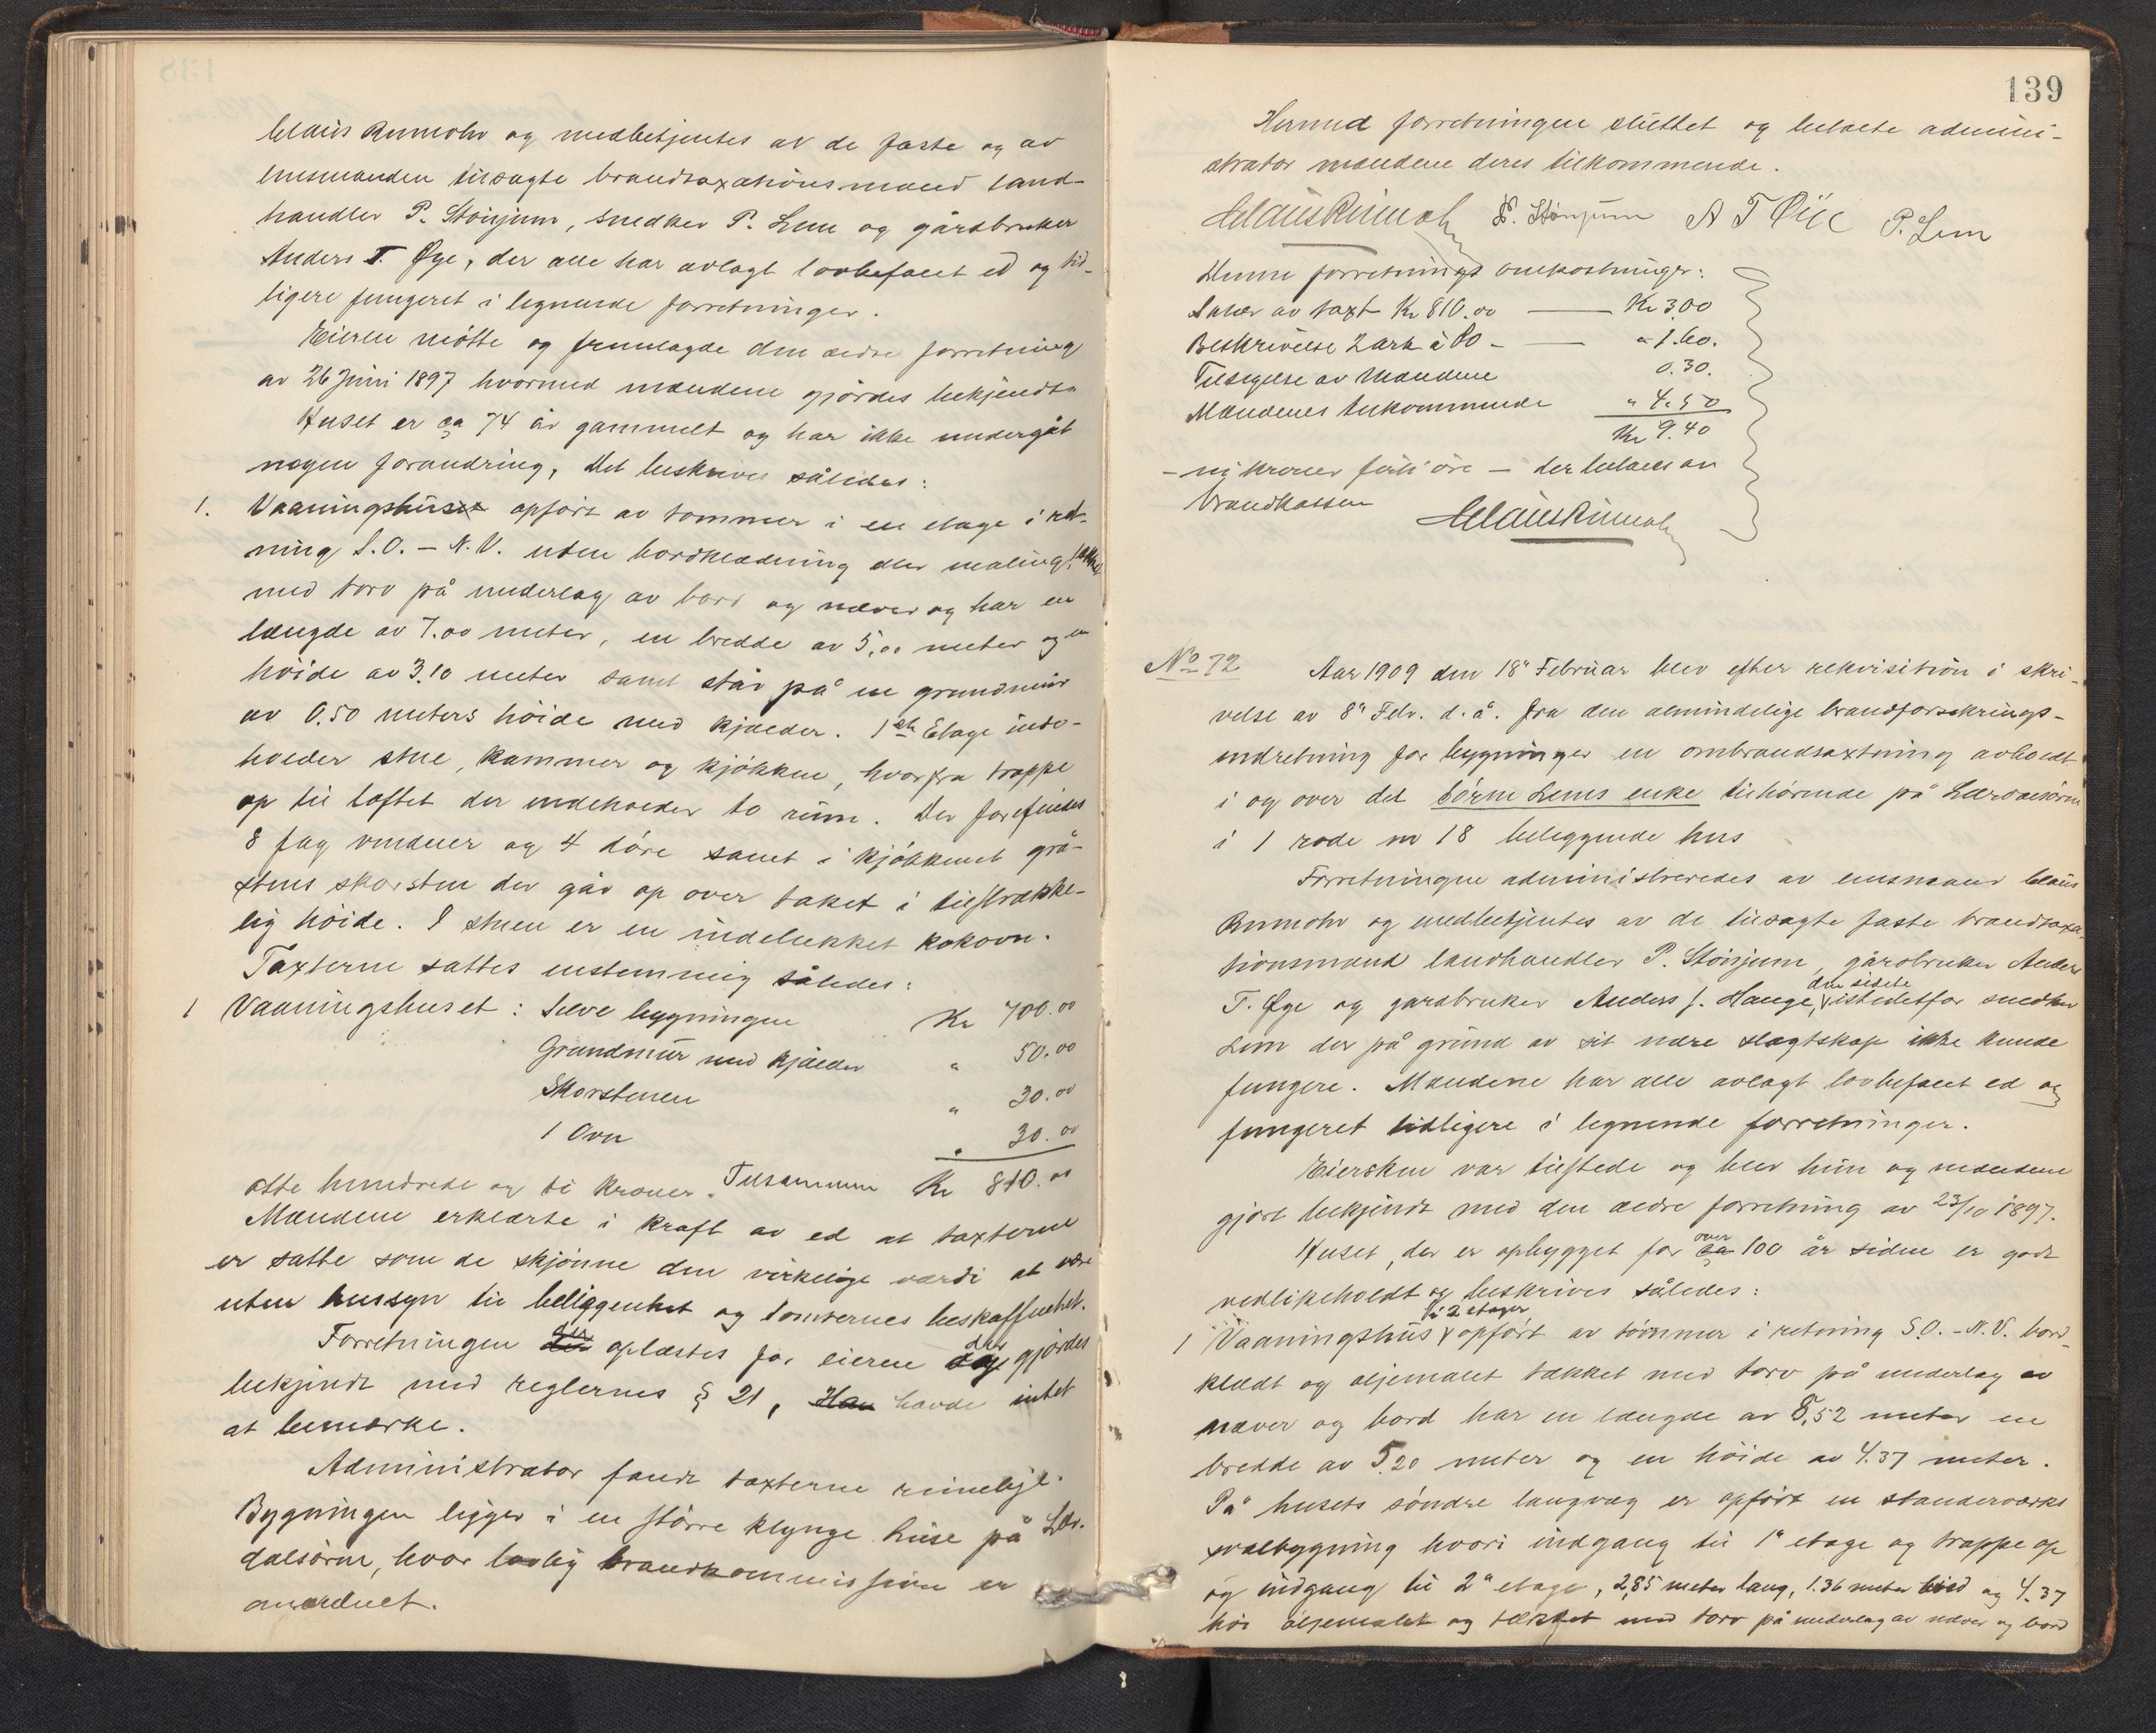 Claus Rumohr og medbetjentes av de faste og av
lensmanden tilsagte brandtaxationsmænd land-
handler P. Stönjum, snedker P. Lem og gårdbruker
Anders T. Øye, der alle har avlagt lovbefalet ed og tid-
ligere fungeret i lignende forretninger.
Eieren mötte og fremlagde den ældre forretning
av 26 Juni 1897 hvormed mændene gjördes bekjendt.
Huset er ca 74 år gammelt og har ikke undergåt
nogen forandring, Det beskrives således:
1. Vaaningshuset opfört av tømmer i en etage i ret-
ning S.O. – N.V. uten bordklædning eller maling, tækket
med torv på underlag av bord og næver og har en
længde av 7.00 meter, en bredde av 5,00 meter og en
höide av 3.10 meter samt står på en grundmur
av 0.50 meters höide med kjælder. 1ste Etage inde-
holder stue, kammer og kjökken, hvorfra trappe
op til loftet der indeholder to rum. Der forefindes
8 fag vinduer og 4 döre samt i kjökkenet grå-
stens skorsten der går op over taket i tilstrække-
lig höide. I stuen er en indelukket kokovn.
Taxterne sattes enstemmig således:
1 Vaaningshuset: Selve bygningen Kr 700.00
Grundmur med kjælder " 50.00
Skorstenen " 30.00
1 Ovn " 30.00
otte hundrede og ti kroner. Tilsammen Kr 810.00
Mændene erklærte i kraft av ed at taxterne
er satte som de skjönne den virkelige værdi at være
uten hensyn til beliggenhet og tomternes beskaffenhet.
Forretningen der oplæstes for eieren der gjördes
bekjendt med reglernes § 21, Han havde intet
at bemærke.
Administrator fandt taxterne rimelige.
Bygningen ligger i en större klynge huse på Lær-
dalsören, hvor lovlig brandkommission er
anordnet.
139
Hermed forretningen sluttet og betalte admini-
strator mændene deres tilkommende.
Claus Rumohr P. Stönjum A T Öie P. Lem
Denne forretnings omkostninger:
Salær av taxt Kr 810.00 — Kr 3.00
Beskrivelse 2 ark à 80 – — " 1.60.
Tilsigelse av Mændene 0.30.
Mændenes tilkommende " 4.50
Kr 9.40
– ni kroner firti öre – der betales av
brandkassen
Claus Rumohr
No 72 Aar 1909 den 18" Februar blev efter rekvisition i skri-
velse av 8" Febr. d.å. fra den almindelige brandforsikrings-
indretning for bygninger en ombrandtaxtning avholdt
i og over det Börne Lems enke tilhörende på Lærdalsören
i 1 rode nr 18 beliggende hus
Forretningen administreredes av lensmand Claus
Rumohr og medbetjentes av de tilsagte faste brandtaxa-
tionsmænd landhandler P. Stönjum, gårdbruker Anders
T. Øye og gardbruker Anders J. Hauge, den sidste istedetfor snedker
Lem der på grund av sit nære slægtskap ikke kunde
fungere. Mændene har alle avlagt lovbefalet ed og
fungeret tidligere i lignende forretninger.
Eiersken var tilstede og blev hun og mændene
gjort bekjendt med den ældre forretning av 23/10 1897.
Huset, der er opbygget for over ca 100 år siden er godt
vedlikeholdt og beskrives således:
1 Vaaningshus i 2 etager opfört av tömmer i retning S.O. – N.V. bord-
klædt og oljemalet tækket med torv på underlag av
næver og bord har en længde av 8,52 meter en
bredde av 5.20 meter og en höide av 4.37 meter.
På husets söndre langvæg er opfört en standerverks
svalbygning hvori indgang til 1" etage og trappe op
og indgang til 2" etage, 2,85 meter lang, 1.36 meter bred og 4.37
höi oljemalet og tækket med torv på underlag av næver og bord